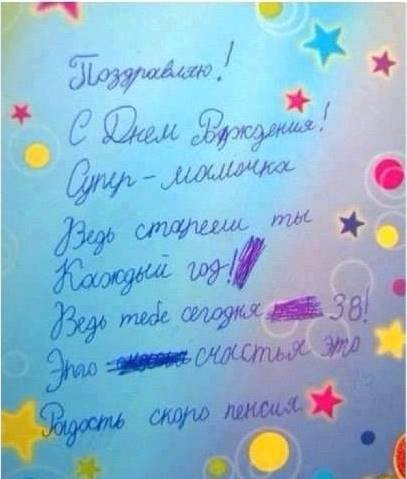 Поздравляю!
С Днем Рождения!
Супер - мамочка
Ведь стареем ты
Каждый год!
Ведь тебе сегодня 38!
Это счастья это
Радость скоро пенсия